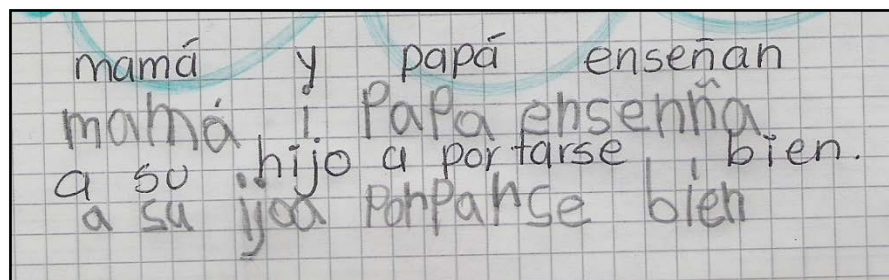 mamá y papá enseñan
mamá i PaPa ensenña
a su hijo a portarse bien.
a su yoa ponPanse bien